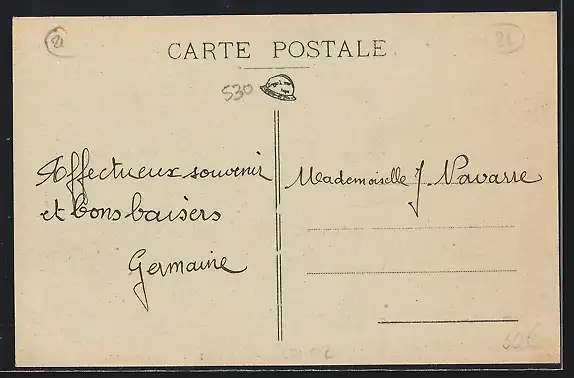 21
21
CARTE POSTALE
530
Affectueux souvenir
et bons baisers
Germaine
Mademoiselle J. Navarre